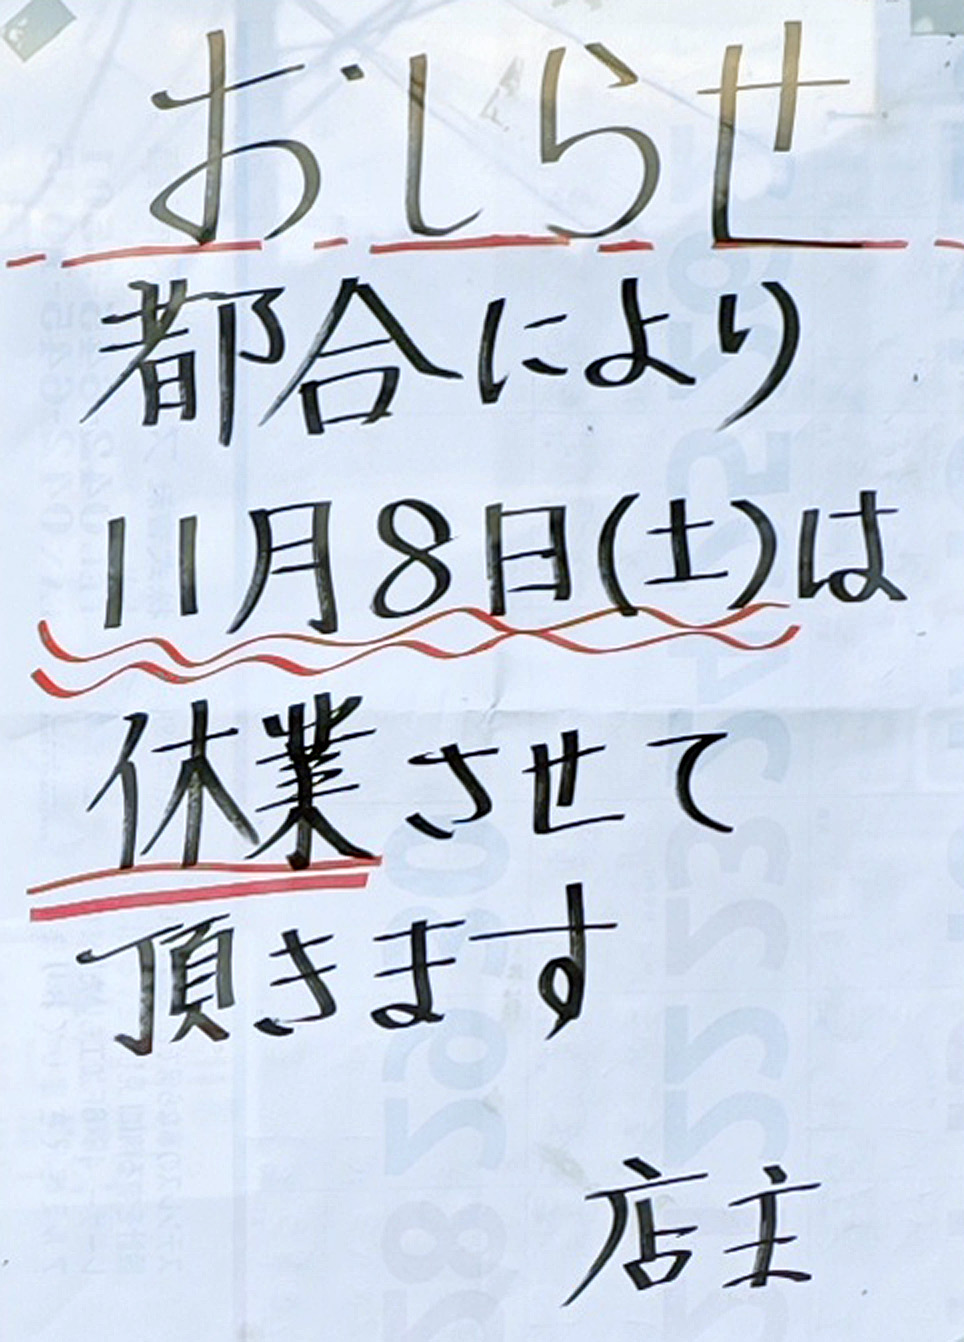 おしらせ
都合により
11月8日(土)は
休業させて
頂きます
店主